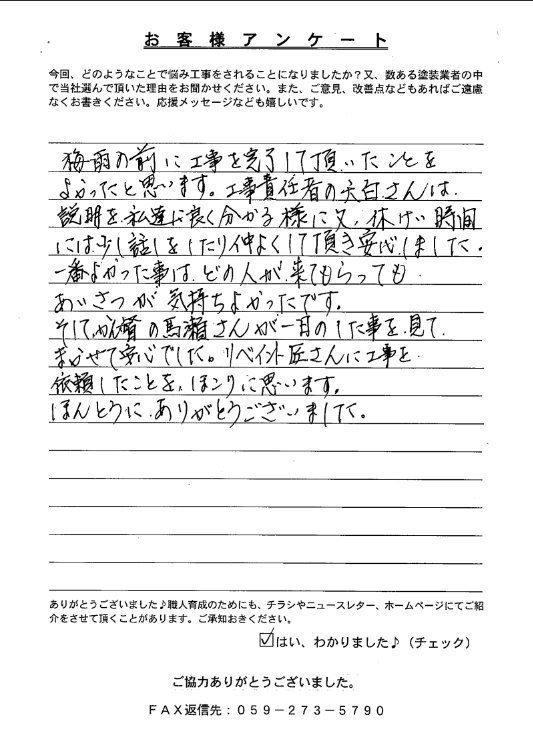 お客様アンケート
今回、どのようなことで悩み工事をされることになりましたか？又、数ある塗装業者の中
で当社選んで頂いた理由をお聞かせください。また、ご意見、改善点などもあればご遠慮
なくお書きください。応援メッセージなども嬉しいです。
梅雨の前に工事を完了して頂いたことを
よかったと思います。工事責任者の大白さんは
説明を私達に良く分かる様に又、休けい時間
には少し話しをしたり仲よくして頂き安心しました。
一番よかった事は、どの人が来てもらっても
あいさつが気持ちよかったです。
そして、がん督の馬瀬さんが一日のした事を見て
まかせて安心でした。リペイント匠さんに工事を
依頼したことを、ほこりに思います。
ほんとうに、ありがとうございました。
ありがとうございました♪職人育成のためにも、チラシやニュースレター、ホームページにてご紹
介をさせて頂くことがあります。ご承知おきください。
☑はい、わかりました♪（チェック）
ご協力ありがとうございました。
ＦＡＸ返信先：０５９－２７３－５７９０